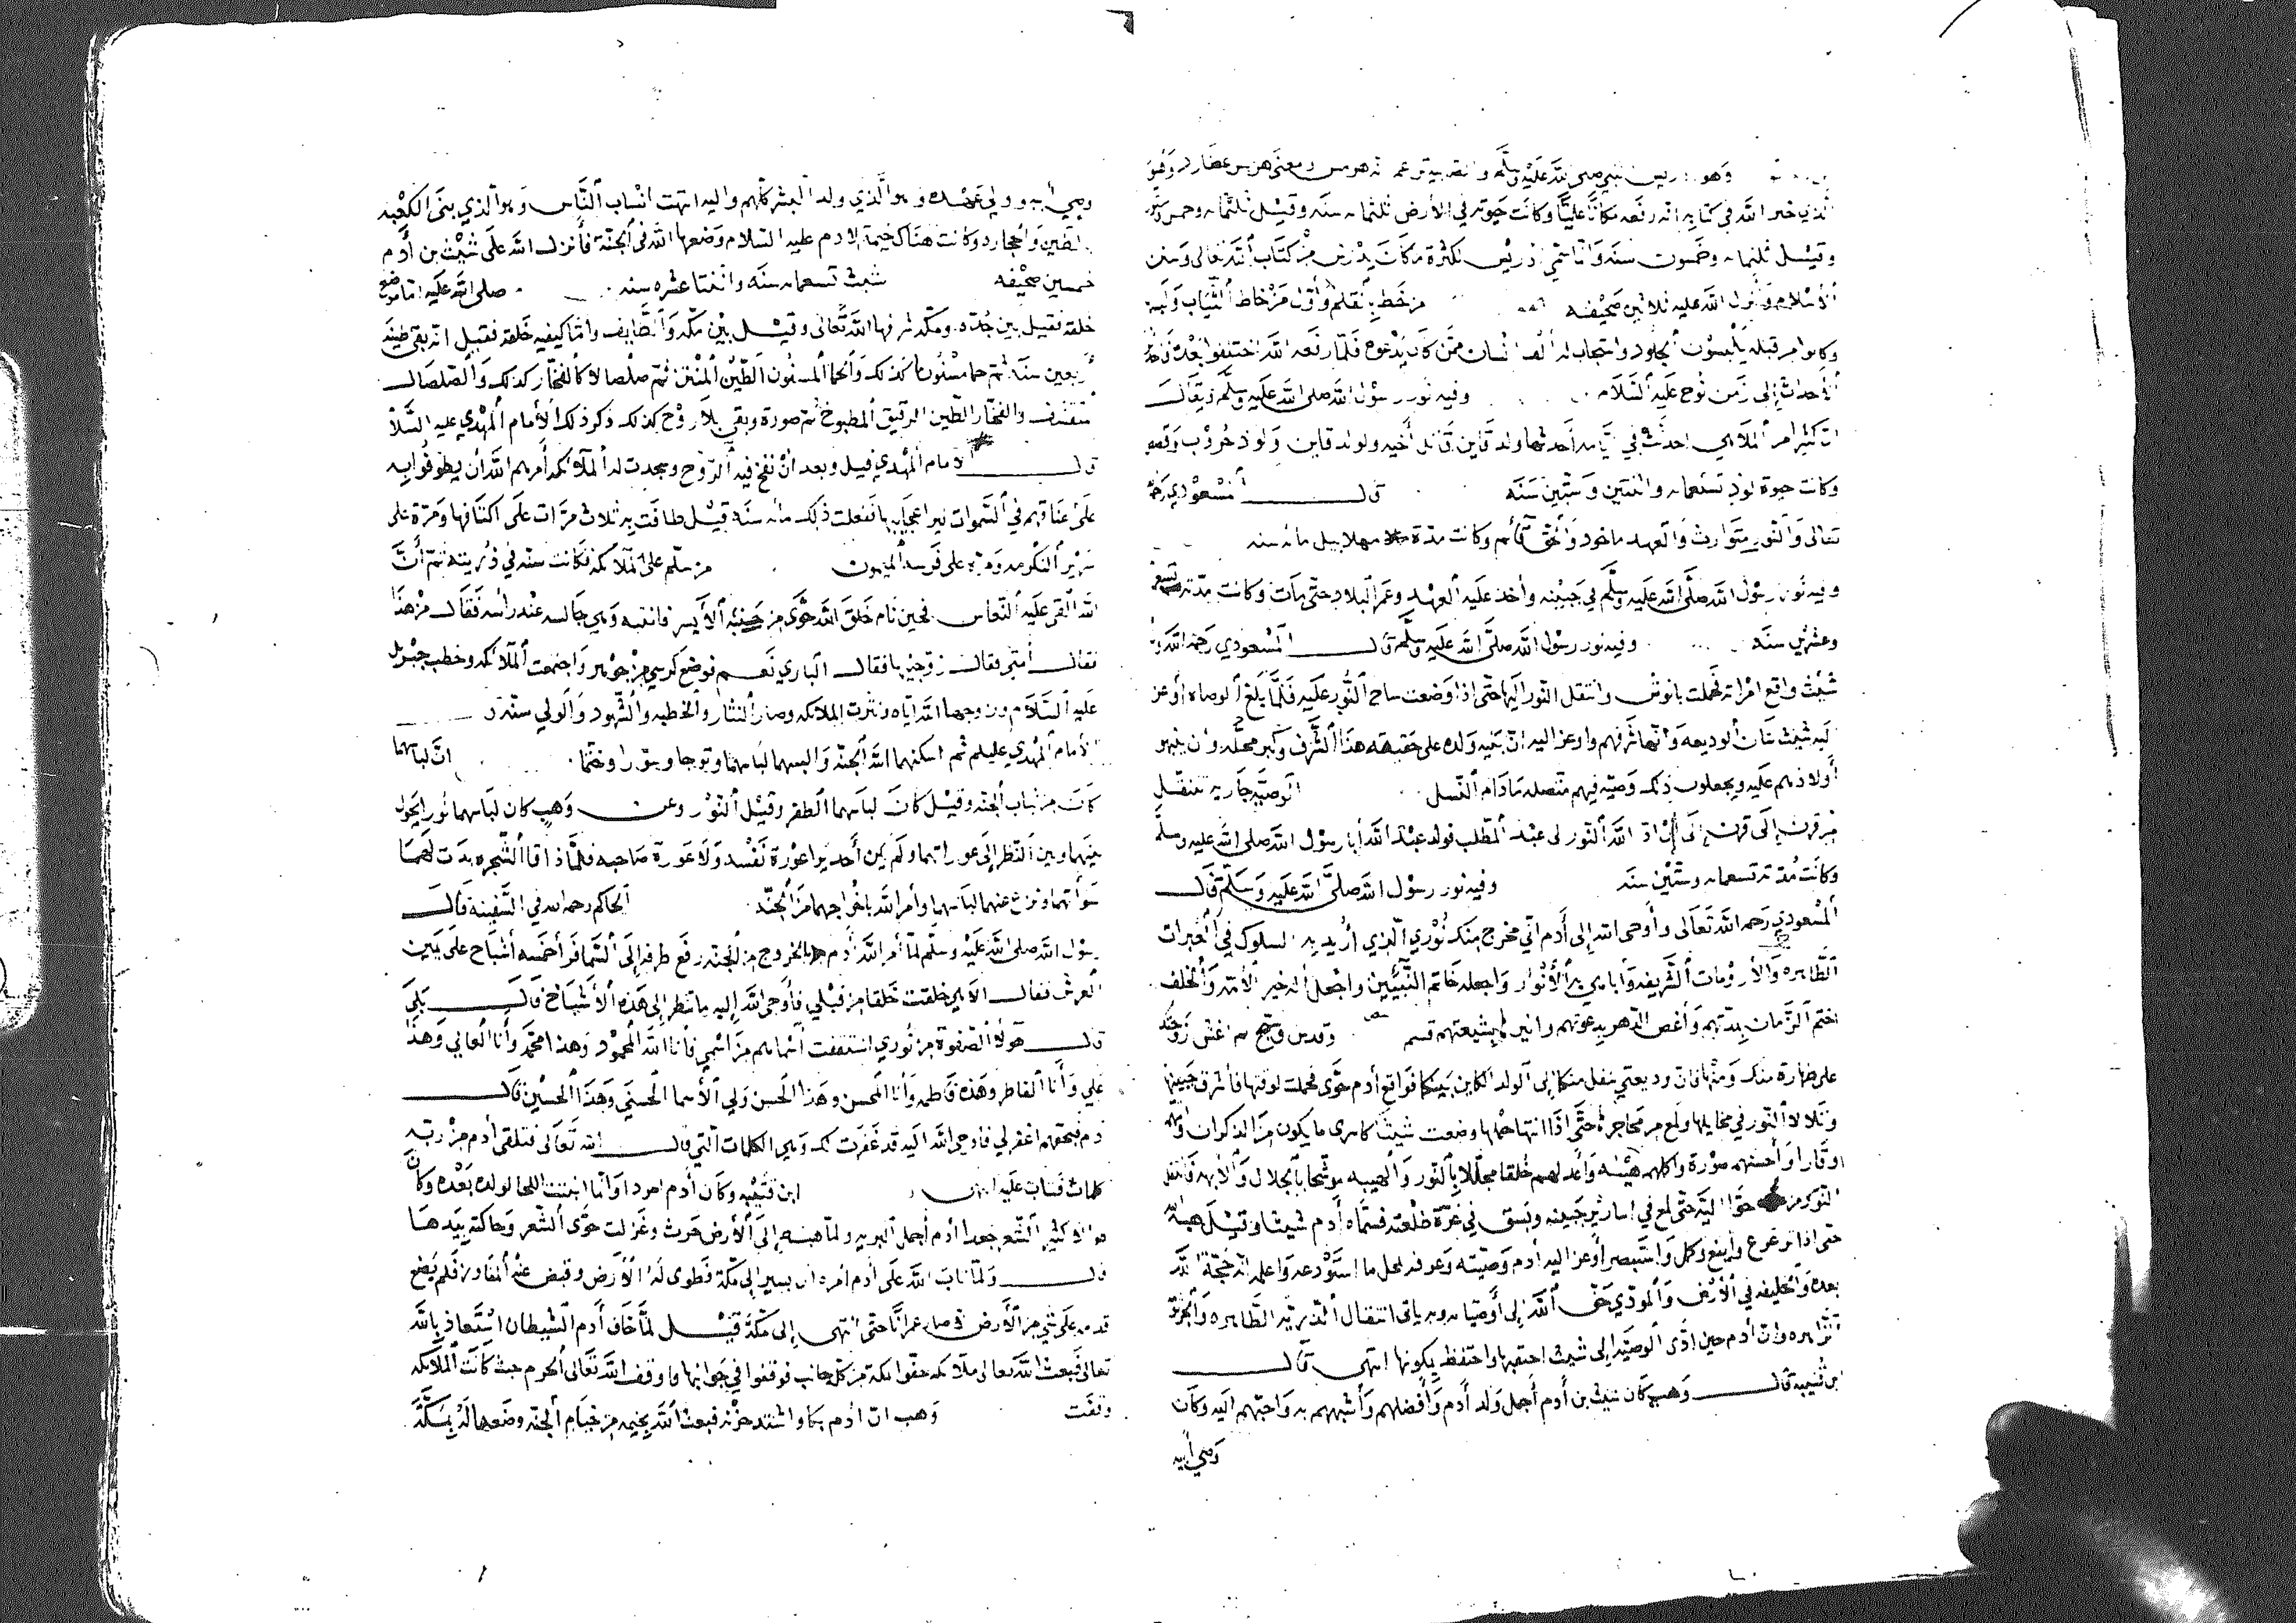 وهو إدريس النبي صلى الله عليه وسلم والصابية تزعم انه هرمس ومعنى هرمس عطارد وهو
الذي خبر الله في كتابه انه رفعه مكانا عليا وكانت حيوته في الأرض ثلثمايه سنه وقيل ثلثمايه وخمس
وقيل ثلثمايه وخمسون سنه وانما سمي ادريس لكثرة ما كان يدرس من كتاب الله تعالى وسنن
الاسلام وانزل الله عليه ثلاثين صحيفه من خط بالقلم وأول من خاط الثياب ولبسه
وكانوا من قبله يلبسون الجلود واستجاب له ألف انسان ممن كان يدعوه فلما رفعه الله اختلفوا بعده
الأحداث إلى زمن نوح عليه السلام وفيه نور رسول الله صلى الله عليه وسلم ويقال
ان كثيرا من الملاهي احدثت في أيامه أحدثها ولد قاين قاتل أخيه ولولد قاين ولود حروب وقصص
وكانت حيوة لود تسعمايه واثنتين وستين سنه قال المسعودي رحمه
تعالى والنور متوارث والعهد ماخوذ والحق قائم وكانت مدة مهلاييل مائه سنه
وفيه نور رسول الله صلى الله عليه وسلم في جبينه وأخذ عليه العهد وعمر البلاد حتى مات وكانت مدته تسعمايه
وعشرين سنه وفيه نور رسول الله صلى الله عليه وسلم قال المسعودي رحمه الله
شيث واقع امراته فحملت بانوش وانتقل النور اليها حتى اذا وضعت ساح النور عليه فلما بلغ الوصاه أوعز
ليه شيث شان الوديعه وأنها شرفهم واوعز اليه ان ينبه ولده على حقيقة هذا الشرف وكبر محله وان ينبهوا
أولادهم عليه ويجعلون ذلك وصيه فيهم متصله ما دام النسل الوصيه جاريه تنتقل
من قرن إلى قرن إلى أن أدى الله النور الى عبد المطلب فولد عبد الله أبا رسول الله صلى الله عليه وسلم
وكانت مدته تسعمايه وستين سنه وفيه نور رسول الله صلى الله عليه وسلم قال
المسعودي رحمه الله تعالى وأوحى الله إلى أدم اني مخرج منك نوري الذي أريد به السلوك في القنوات
الطاهره والأرومات الشريفه وأباهي به الأنوار واجعله خاتم النبيين واجعل اله خير الأئمه والخلف
اختم الزمان بمدتهم وأغص الدهر بدعوتهم وانيرها بشيعتهم وقدس وسبح ثم اغش زوجتك
على طهارة منك ومنها فان وديعتي تنقل منكما إلى الولد الكاين بينكما فواقع أدم حوى فحملت لوقتها فأشرق جبينها
وتلالا النور في مخايلها ولمع من محاجرها حتى اذا انتها حملها وضعت شيث كاسرى ما يكون من الذكران واتمه
وقارا وأحسنهم صورة واكلهم هيئه واعدلهم خلقا مجللا بالنور والهيبه موشحا بالجلال والأبهه فانتقل
النور من حوا اليه حتى لمع في اسارير جبينه وبسق في غرة طلعته فسماه أدم شيثا وقيل هبة الله
حتى اذا ترعرع وأينع وكمل واستبصر أوعز اليه أدم وصيته وعرفه محل ما استودعه واعلمه انه حجة الله
بعده والخليفه في الأرض والمودي حق الله إلى أوصيائه وبه ياتى انتقال الذريه الطاهره
الزاهره وان أدم حين ادى الوصيه إلى شيث احتقبها واحتفظ بكونها انتهى قال
ابن قتيبه قال وهب كان شيث بن أدم أجمل ولد أدم وأفضلهم وأشبههم به واحبهم اليه وكان
وصي أبيه
وصي أبيه وولي عهده وهو الذي ولد البشر كلهم واليه انتهت انساب الناس وهو الذي بنى الكعبه
بالطين والحجاره وكانت هناك خيمة لادم عليه السلام وضعها الله في الجنة فأنزل الله على شيث بن أدم
خمسين صحيفه شيث تسعمايه سنه واثنتا عشره سنه صلى الله عليه اما موضع
خلقه فقيل بين جده ومكه شرفها الله تعالى وقيل بين مكه والطايف وأما كيفيه خلقه فقيل انه بقي طينه
أربعين سنه ثم حما مسنونا كذلك والحما المسنون الطين المنتن ثم صلصالا كالفخار كذلك والصلصال
والفخار الطين الرقيق المطبوخ ثم صورة وبقي بلا روح كذلك ذكر ذلك الأمام المهدي عليه السلام
قال الامام المهدي قيل وبعد ان نفخ فيه الروح وسجدت له الملائكه أمرهم الله أن يطوفوا به
على عناقهم في السموات ليرا عجايبها ففعلت ذلك مائه سنه قيل طافت به ثلاث مرات على اكتافها ومرة على
سرير الكرامه ومرة على فرسه الميمون من سلم على الملائكه فكانت سنه في ذريته ثم أن
الله القى عليه النعاس فحين نام خلق الله حوى من جنبه الأيسر فانتبه وهي جالسه عند راسه فقال من هذا
فقال أمتي فقال زوجنيها فقال الباري نعم فوضع كرسي من جوهر واجتمعت الملائكه وخطب جبريل
عليه السلام وزوجها الله اياه ونثرت الملائكه وصار النثار والخطبه والشهود والولي سنه
الامام المهدي عليلم ثم اسكنهما الله الجنه والبسهما لباسهما وتوجا وسورا وختما ان لباسهما
كان من ثياب الجنه وقيل كان لباسهما الظفر وقيل النور وعن وهب كان لباسهما نورا يحول
بينهما وبين النظر إلى عوراتهما ولم يكن أحد يرا عورة نفسه ولا عورة صاحبه فلما ذاقا الشجره بدت لهما
سوأتهما ونزع عنهما لباسهما وأمر الله باخراجهما من الجنه الحاكم رحمه الله في السفينة قال
رسول الله صلى الله عليه وسلم لما أمر الله أدم بالخروج من الجنه رفع طرفه إلى السما فرأ خمسه أشباح على يمين
العرش فقال الاهي خلقت خلقا من قبلي فأوحى الله إليه ما تنظر إلى هذه الأشباح قال بلى
قال هولاء الصفوة من نوري اشتققت اسماهم من اسمي فأنا الله المحمود وهذا محمد وأنا العالي وهذا
علي وأنا الفاطر وهذه فاطمه وأنا المحسن وهذا الحسن ولي الأسما الحسنى وهذا الحسين قال
أدم فبحقهم اغفر لي فاوحى الله اليه قد غفرت لك وهي الكلمات التي قال الله تعالى فتلقى أدم من ربه
كلمات فتاب عليه ابن قتيبه وكان أدم امرد اوانما انبتت اللحا لولده بعده وكان
طوالا كثير الشعر جعدا أدم أجمل البريه ولما هبط إلى الأرض حرث وغزلت حوى الشعر وحاكته بيدها
قال ولما تاب الله على أدم امره ان يسير إلى مكة فطوى له الأرض وقبض عنه المفاوز فلم يضع
قدمه على شي من الأرض الا صار عمرانا حتى انتهى إلى مكة قيل لما خاف أدم الشيطان استعاذ بالله
تعالى فبعث الله تعالى ملائكه حفوا بمكه من كل جانب فوقفوا في جوانبها واوقف الله تعالى الحرم حيث كانت الملائكه
وقفت وهب ان ادم بكا واشتد حزنه فبعث الله بخيمه من خيام الجنه وضعها له بمكة